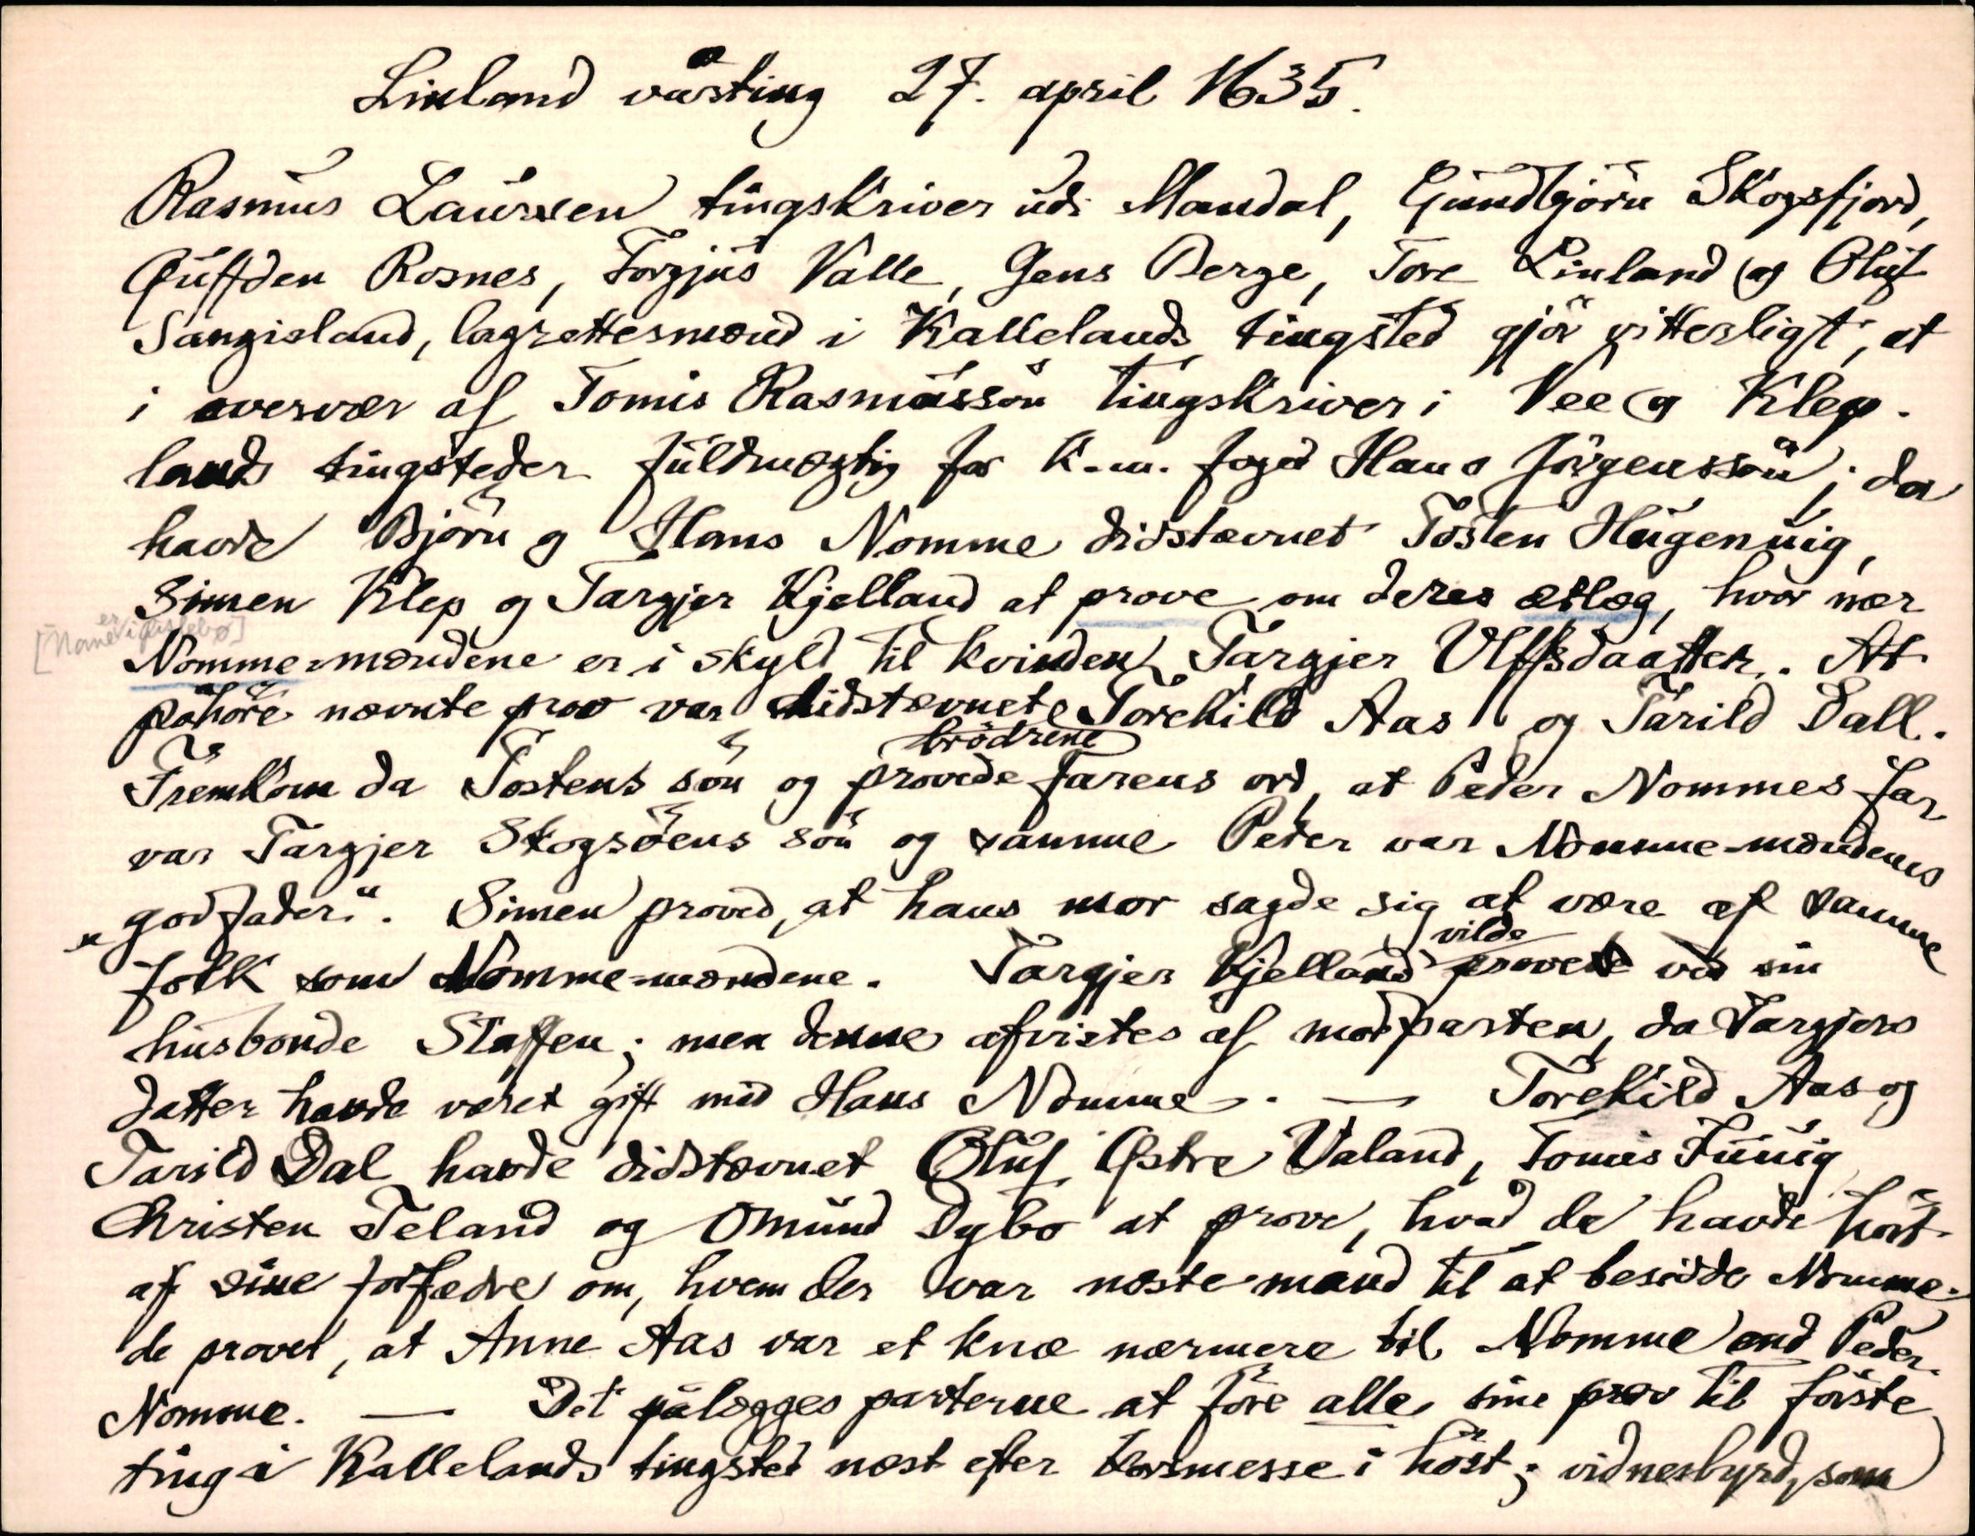 Linland vårting 27. april 1635.
Rasmus Laursen tingskriver udi Mandal, Gundbjörn Skogsfjord,
Guffden Rosnes, Torgjus Valle, Jens Berge, Tore Linland og Oluf
Sangisland, lagrettesmænd i Kallelands tingsted gjör vitterligt, at
i overvær af Tomis Rasmussön tingskriver i Vee og Klep-
lands tingsteder fuldmægtig for k.m. foged Hans Jörgenssön; da
havde Björn og Hans Nomme didstævnet Tosten Hugenuig,
Simen Klep og Targjer Kjelland at prove om deres ætlæg, hvor nær
Nomme-mændene er i skyld til kvinden Targjer Ulffsdaatter. At
påhöre nævnte prov var didstævnete Torekild Aas og Tarild Dall.
Fremkom da Tostens sön og provede farens ord, at brödrene Peder Nommes far
var Targjer Skogsöens sön og samme Peder var Nomme-mændenes
"godfader". Simen proved, at hans mor sagde sig at være af samme
folk som Nomme-mændene. Targjer Kjelland vilde prove ved sin
husbonde Staffen; men denne afvistes af modparten, da Targjers
datter havde været gift med Hans Nomme. — Torekild Aas og
Tarild Dal havde didstævnet Oluf Östre Valand, Tomis Fuuig
Christen Teland og Omund Dybo at prove, hvad de havde hört
af sine forfædre om, hvem der var næste mand til at besidde Nomme.
de provet, at Anne Aas var et knæ nærmere til Nomme end Peder
Nomme. — Det pålægges parterne at före alle sine prov til förste
ting i Kallelands tingsted næst efter korsmesse i höst; vidnesbyrd, som